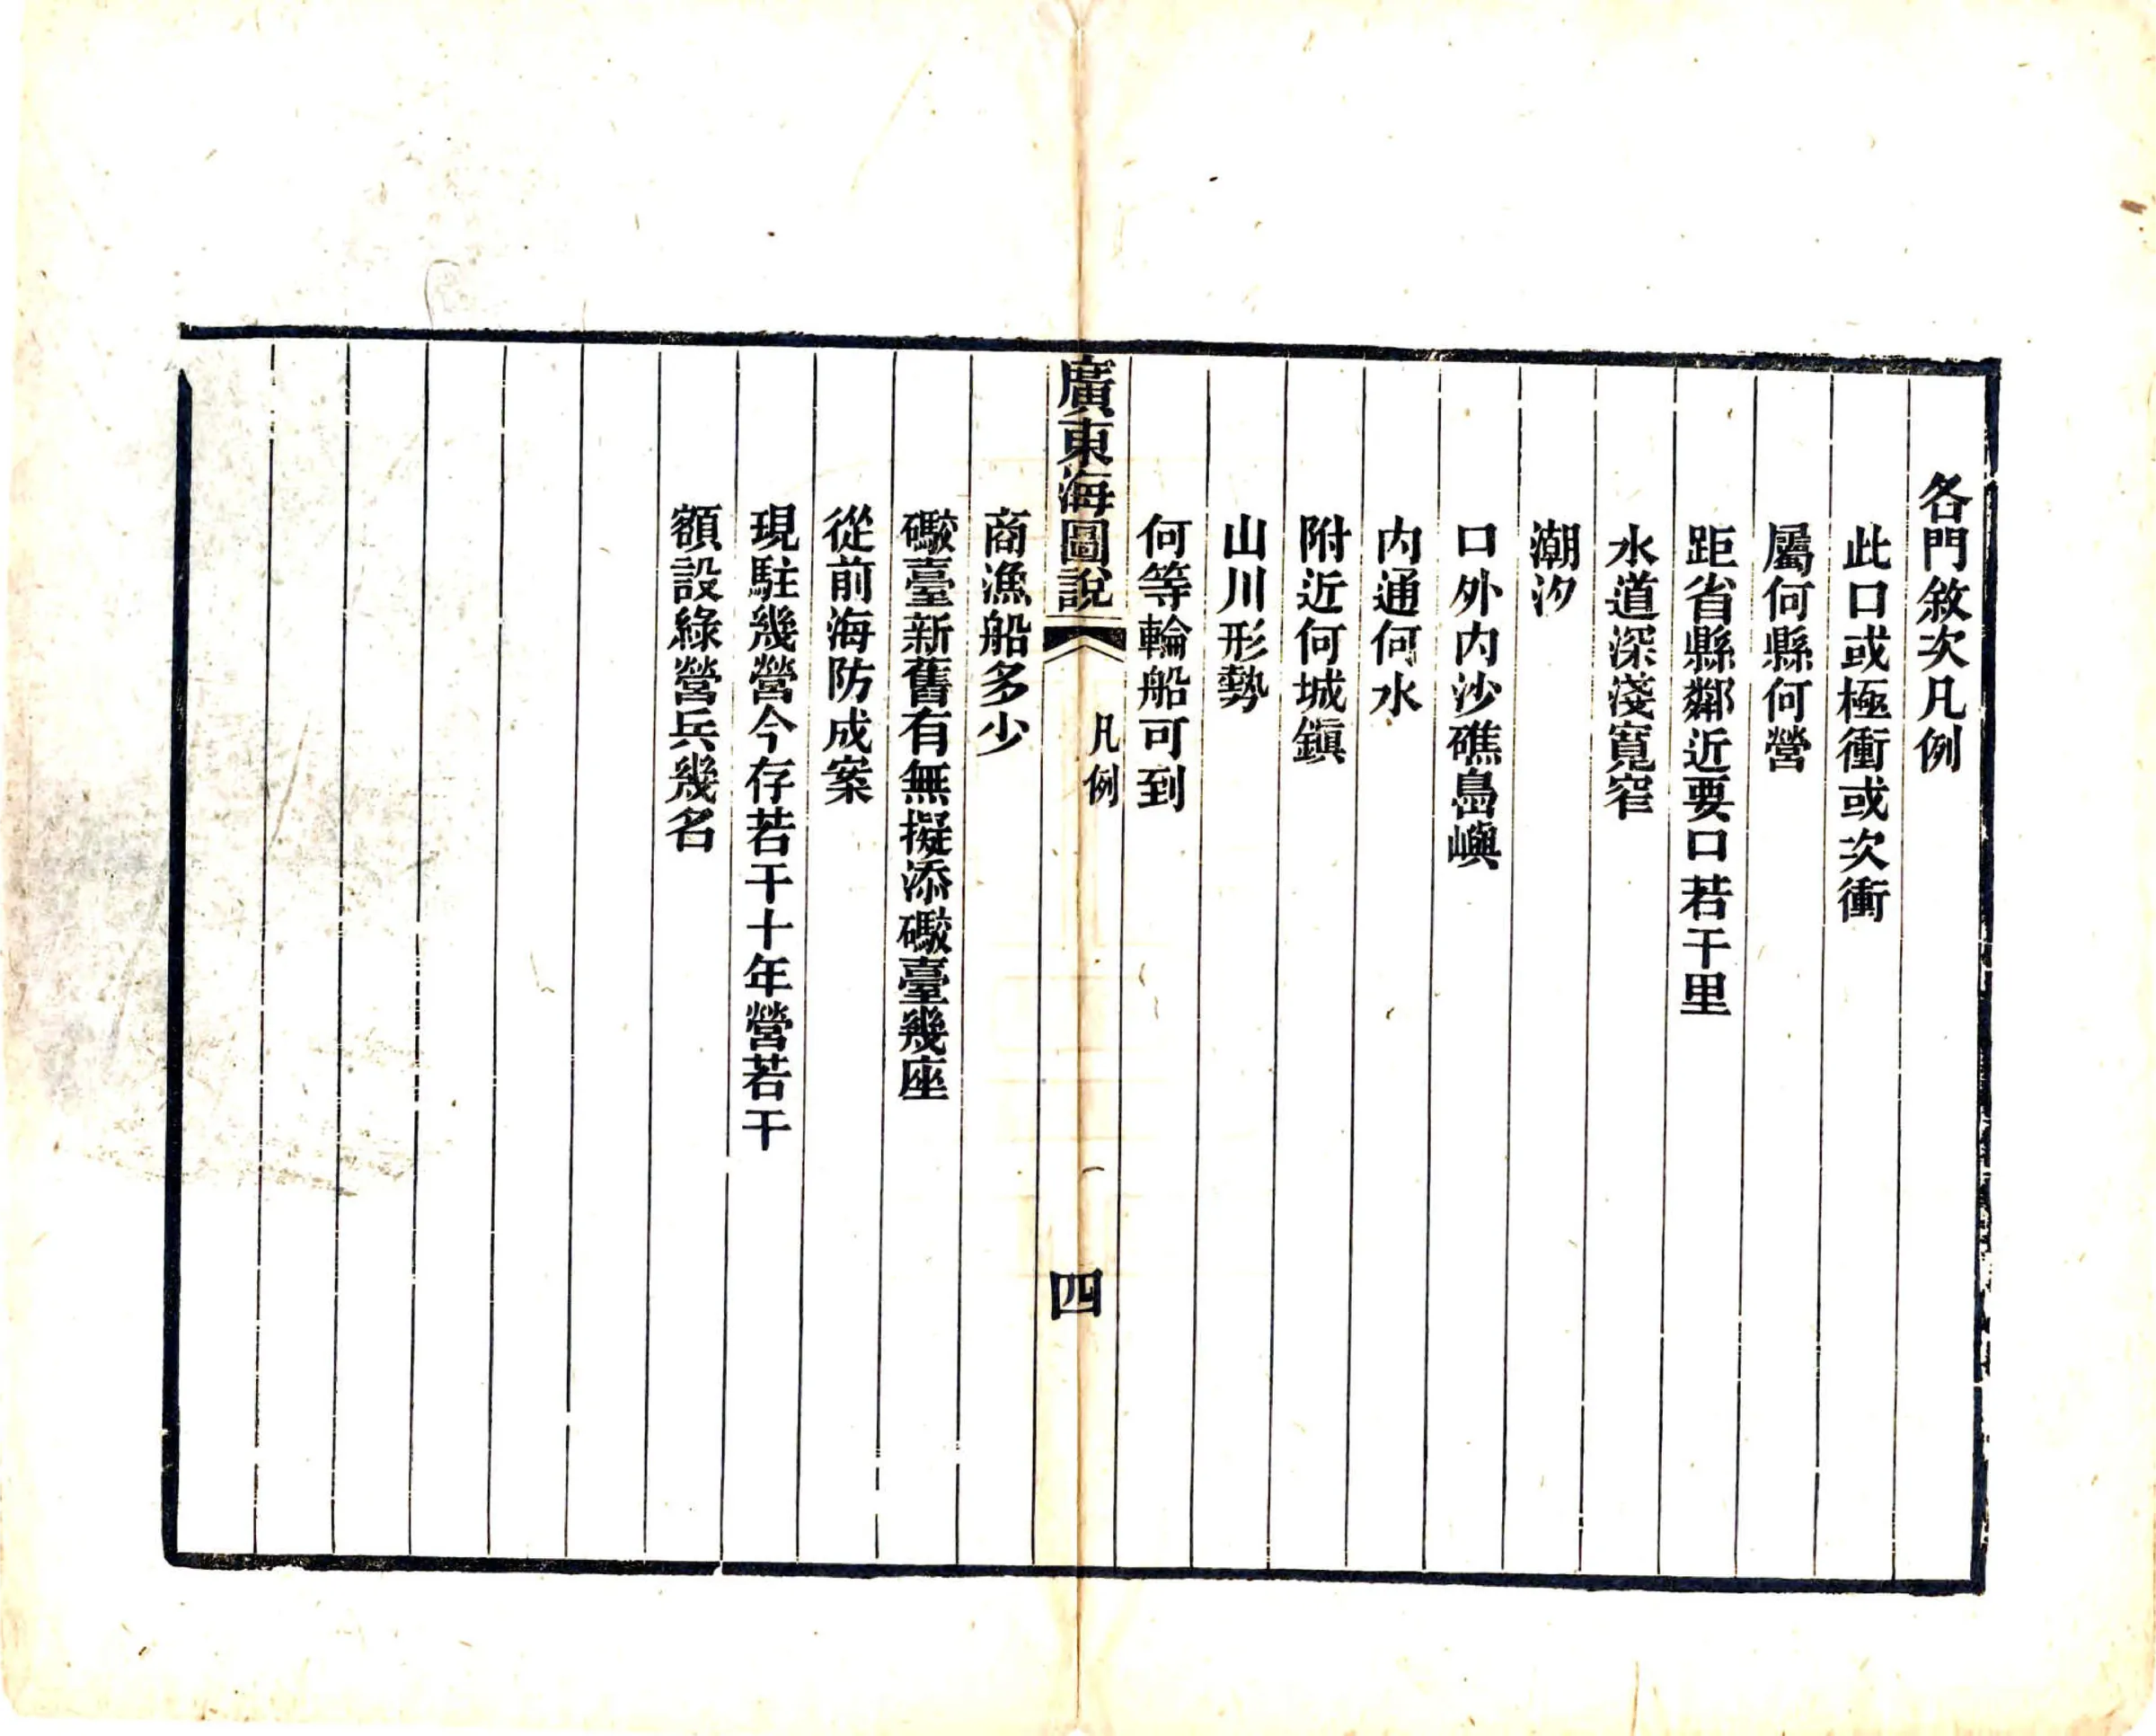 各門敘次凡例
此口或極衝或次衝
屬何縣何營
距省縣鄰近要口若干里
水道深淺寬窄
潮汐
口外内沙礁島嶼
内通何水
附近何城鎭
山川形勢
何等輪船可到
廣東海圖說
凡例
四
商漁船多少
礮臺新舊有無擬添礮臺幾座
從前海防成案
現駐幾營今存若干十年營若干
額設綠營兵幾名